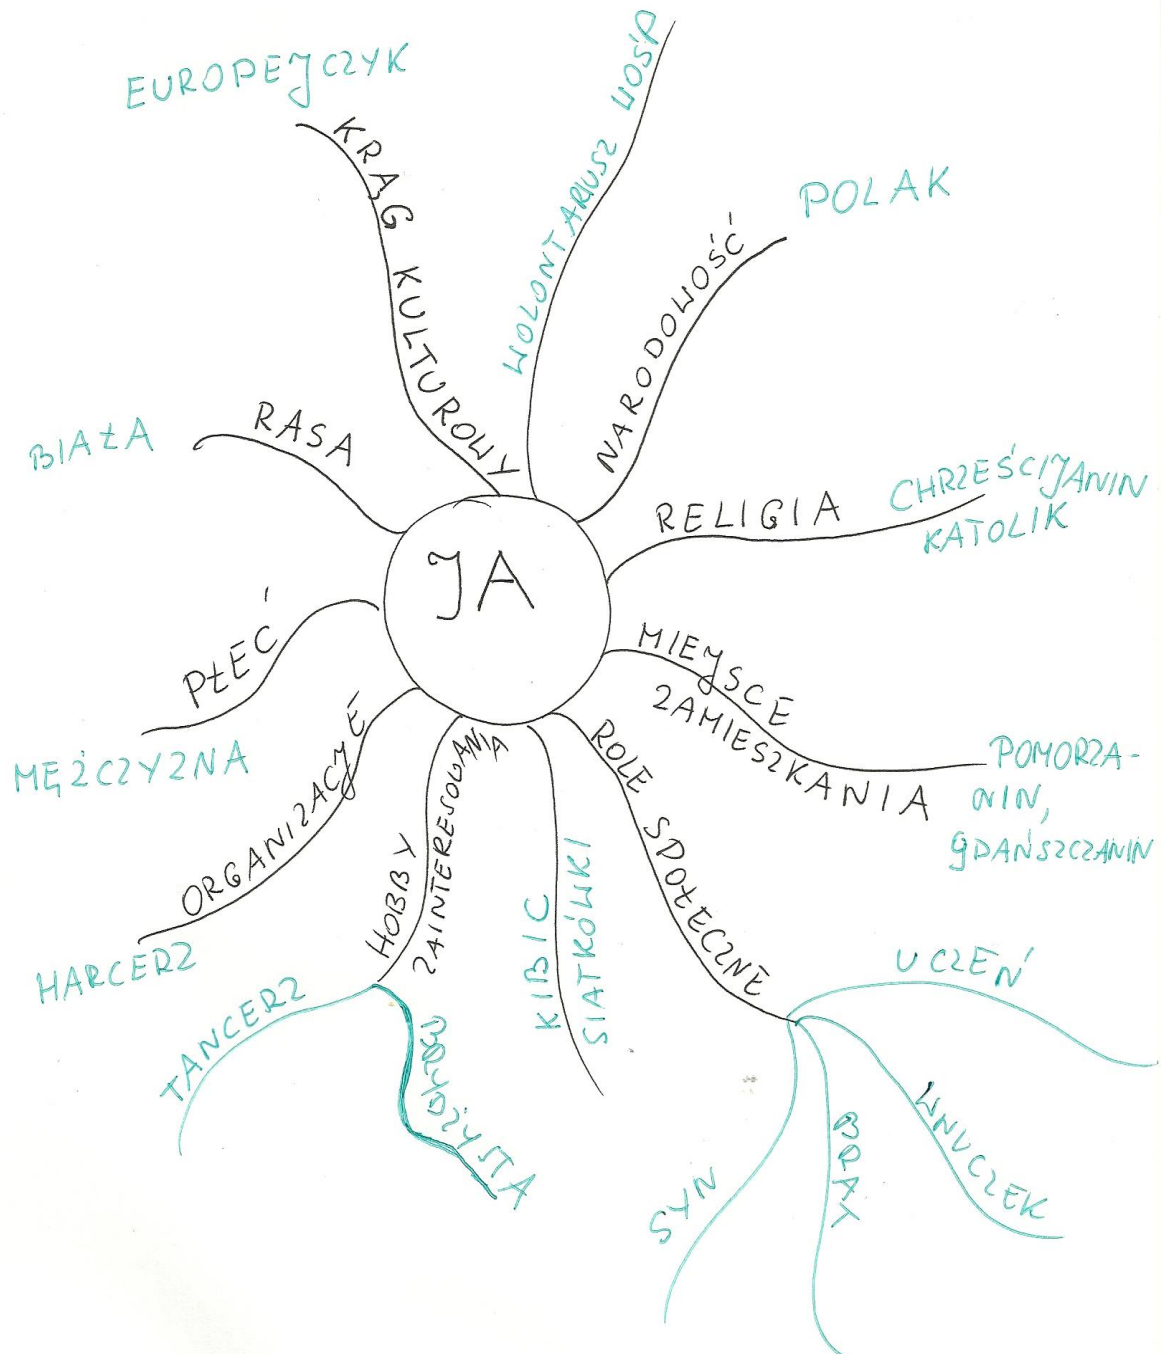 JA
KRĄG KULTUROWY
EUROPEJCZYK
WOLONTARIUSZ WOŚP
NARODOWOŚĆ
POLAK
RELIGIA
CHRZEŚCIJANIN
KATOLIK
MIEJSCE
ZAMIESZKANIA
POMORZA-
NIN,
GDAŃSZCZANIN
ROLE SPOŁECZNE
UCZEŃ
WNUCZEK
BRAT
SYN
KIBIC
SIATKÓWKI
HOBBY
ZAINTERESOWANIA
TANCERZ
ORGANIZACJE
HARCERZ
PŁEĆ
MĘŻCZYZNA
RASA
BIAŁA